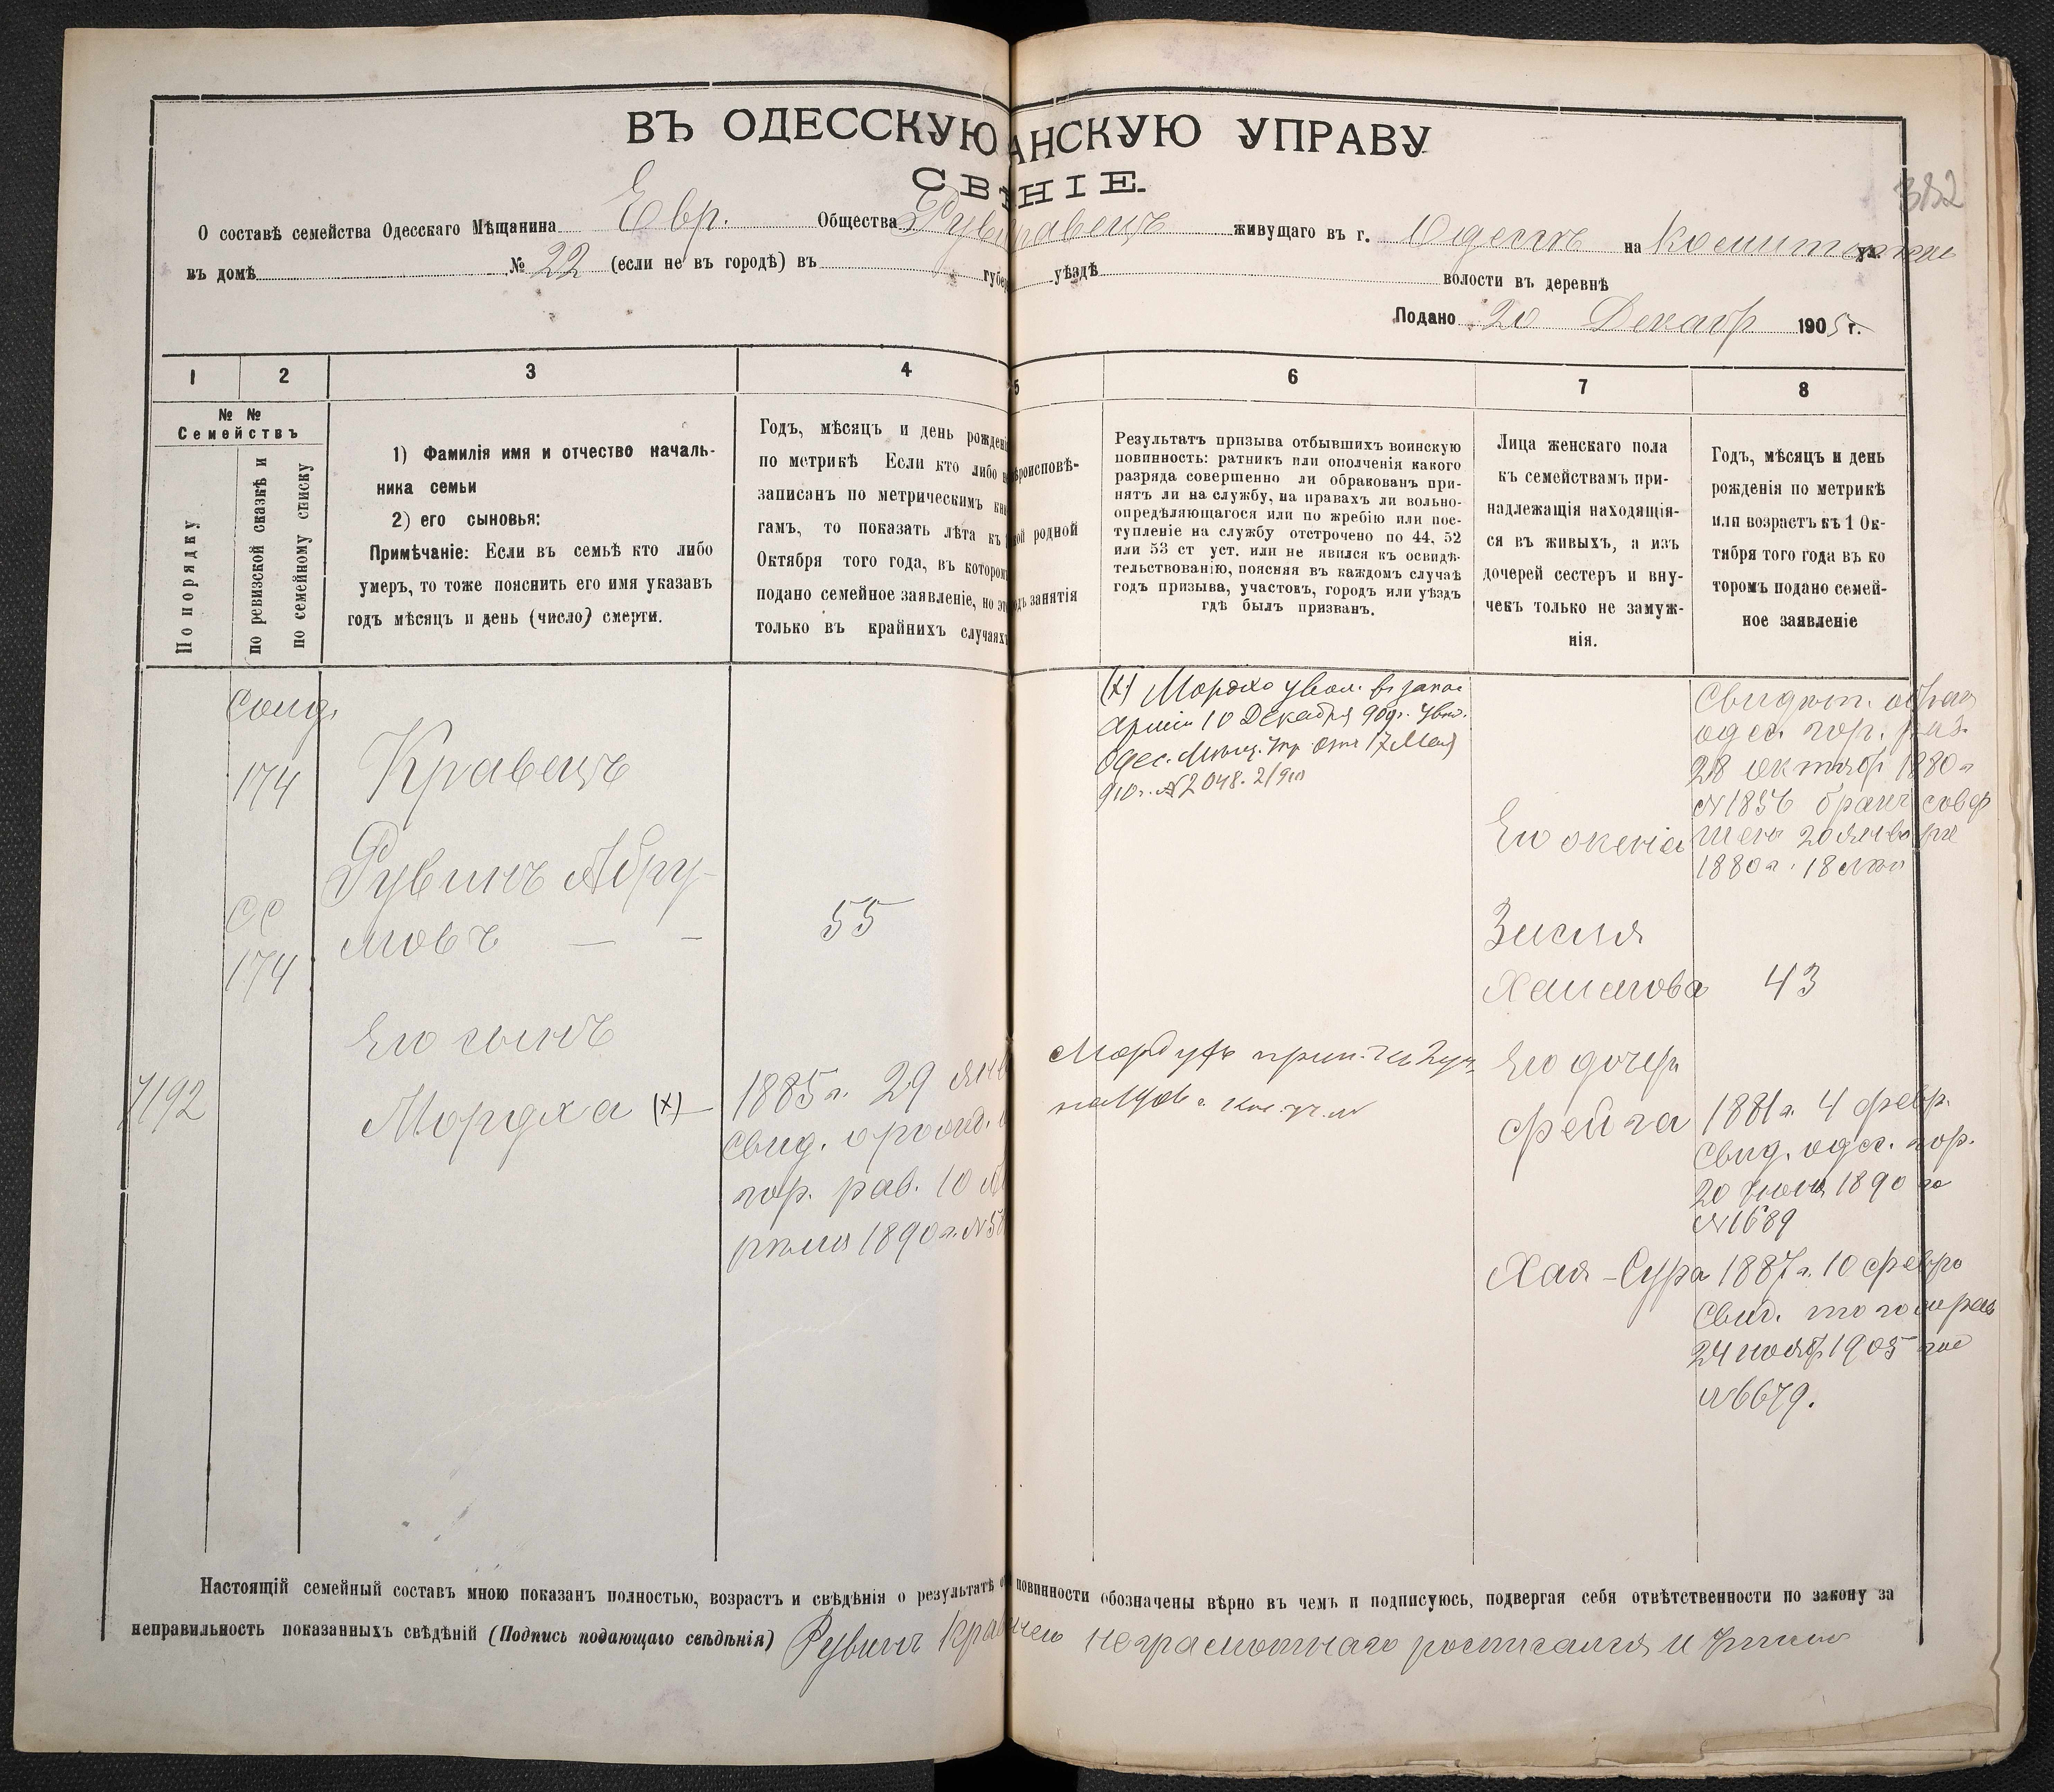 ВЪ ОДЕССКУЮ АНСКУЮ УПРАВУ
СВ НІЕ.
382
О составѣ семейства Одесскаго Мѣщанина Евр. Общества Рув равецъ живущаго въ г. Одессѣ на ул.
въ домѣ № 22 (если не въ городѣ) въ губер уѣздѣ волости въ деревнѣ
Подано 20 Декабр 1905 г.
1 2 3 4 5 6 7 8
№ №
Семействъ
По порядку
по ревизской сказкѣ и
по семейному списку
1) Фамилія имя и отчество началь-
ника семьи
2) его сыновья:
Примѣчаніе: Если въ семьѣ кто либо
умеръ, то тоже пояснить его имя указавъ
годъ мѣсяцъ и день (число) смерти.
Годъ, мѣсяцъ и день рожденія
по метрикѣ Если кто либо н
записанъ по метрическимъ кни
гамъ, то показать лѣта къ
Октября того года, въ котором
подано семейное заявленіе, но эт
только въ крайнихъ случаяхъ
ѣроисповѣ-
ой родной
дъ занятія
Результатъ призыва отбывшихъ воинскую
повинность: ратникъ или ополченія какого
разряда совершенно ли обракованъ при-
нятъ ли на службу, на правахъ ли вольно-
опредѣляющагося или по жребію или пос-
тупленіе на службу отстрочено по 44, 52
или 53 ст уст. или не явился къ освидѣ-
тельствованію, поясняя въ каждомъ случаѣ
годъ призыва, участокъ, городъ или уѣздъ
гдѣ былъ призванъ.
Лица женскаго пола
къ семействамъ при-
надлежащія находящія-
ся въ живыхъ, а изъ
дочерей сестеръ и вну-
чекъ только не замуж-
нія.
Годъ, мѣсяцъ и день
рожденія по метрикѣ
или возрастъ къ 1 Ок-
тября того года въ ко
торомъ подано семей-
ное заявленіе
174
Кравецъ
Рувинъ Абру-
мовъ — -
55
174
Его сынъ
7192
Мордха (х)
1885 г. 29 янв
Свид. о рожд.
гор. рав. 10 А
рѣля 1890 г. №
(х) Мордхо увол. въ запас
арміи 10 Декабря 909г. Увѣд.
Одес. Мѣщ. Упр. отъ 17 Мая
910 г. № 2048. 2/910
Его жена
Зисля
Хаимова 43
Свидѣт.
одес. гор. рав.
28 октяб 1880 г
№ 1856 бракъ совер
шенъ 20 января
1880 г. 18
Его дочери
Фейга 1881 г. 4 февр.
Свид. одес. гор.
20 1890 го
№ 1689
Хая-Сура 1887 г. 10 февра
Свид. того же рав
24 нояб 1905 года
№ 6679.
Настоящій семейный составъ мною показанъ полностью, возрастъ и свѣдѣнія о результатѣ о повинности обозначены вѣрно въ чемъ и подписуюсь, подвергая себя отвѣтственности по закону за
неправильность показанныхъ свѣдѣній (Подпись подающаго свѣдѣнія) Рувинъ неграмотнаго